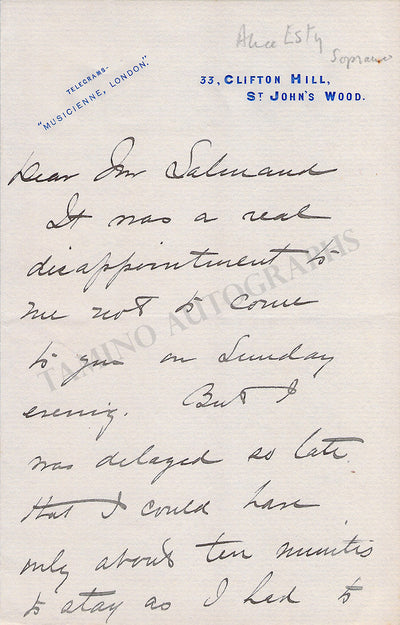 Alice Esty
Soprano
TELEGRAMS-
"MUSICIENNE, LONDON."
33, CLIFTON HILL,
ST JOHN'S WOOD.
Dear Mr Salmand
It was a real
disappointment to
me not to come
to you on Sunday
evening. But I
was delayed so late
that I could have
only about ten minutes
to stay as I had to
TAMINO AUTOGRAPHS